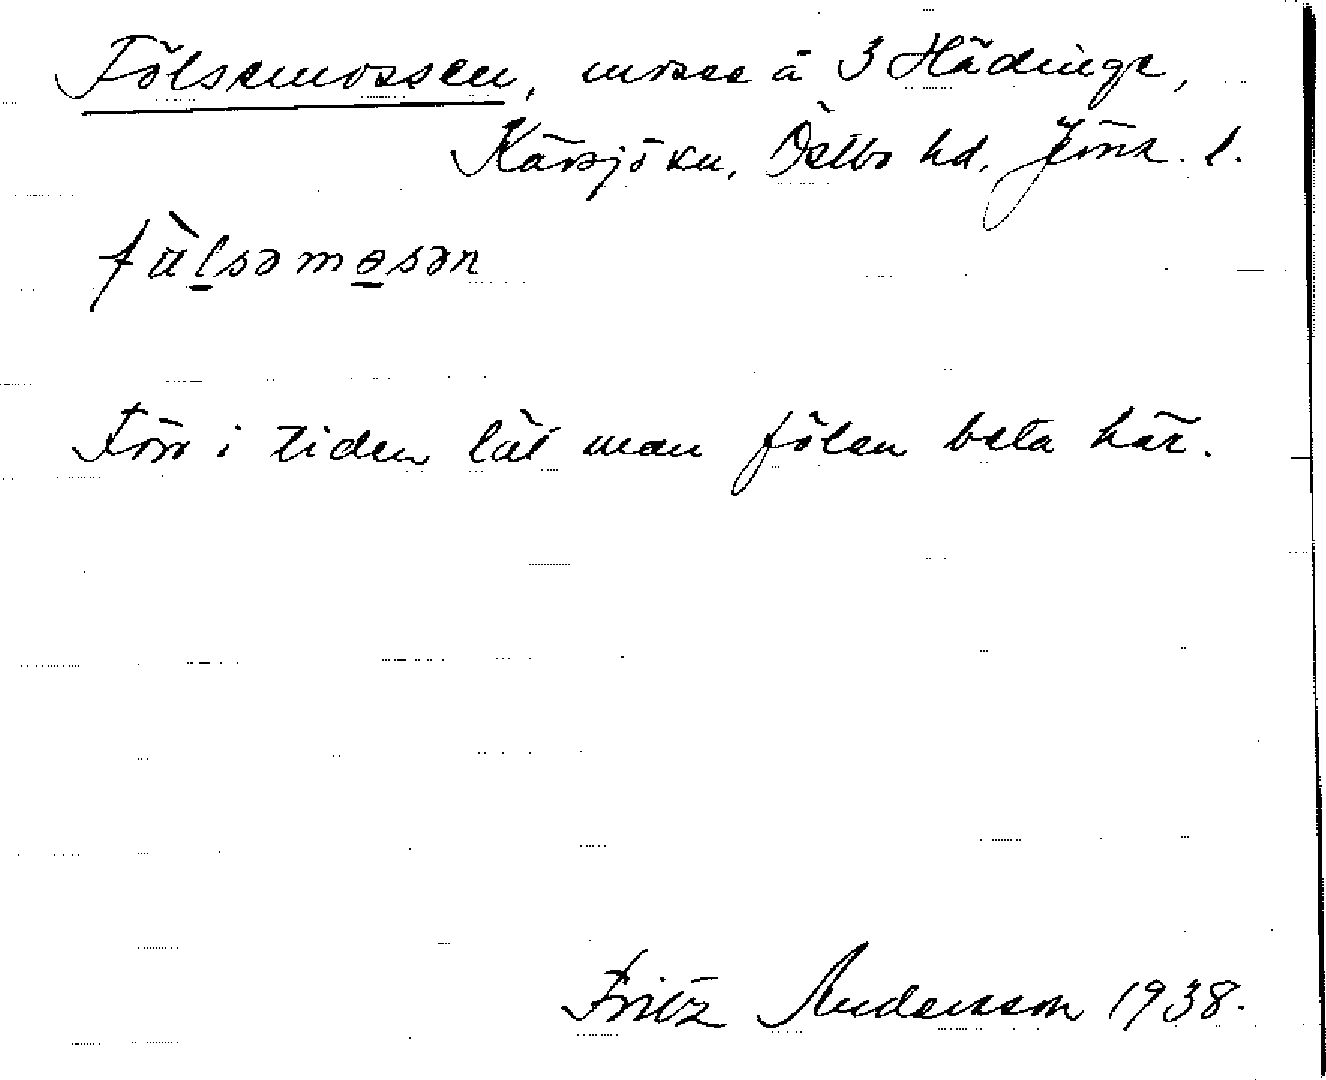 Fölsemossen, mosse å 3 Hädinge,
Kärsjö kn, Östbo hd, Jönk. l.
fälsəməsən
Förr i tiden lät man fölen beta här.
Fritz Andersson 1938.